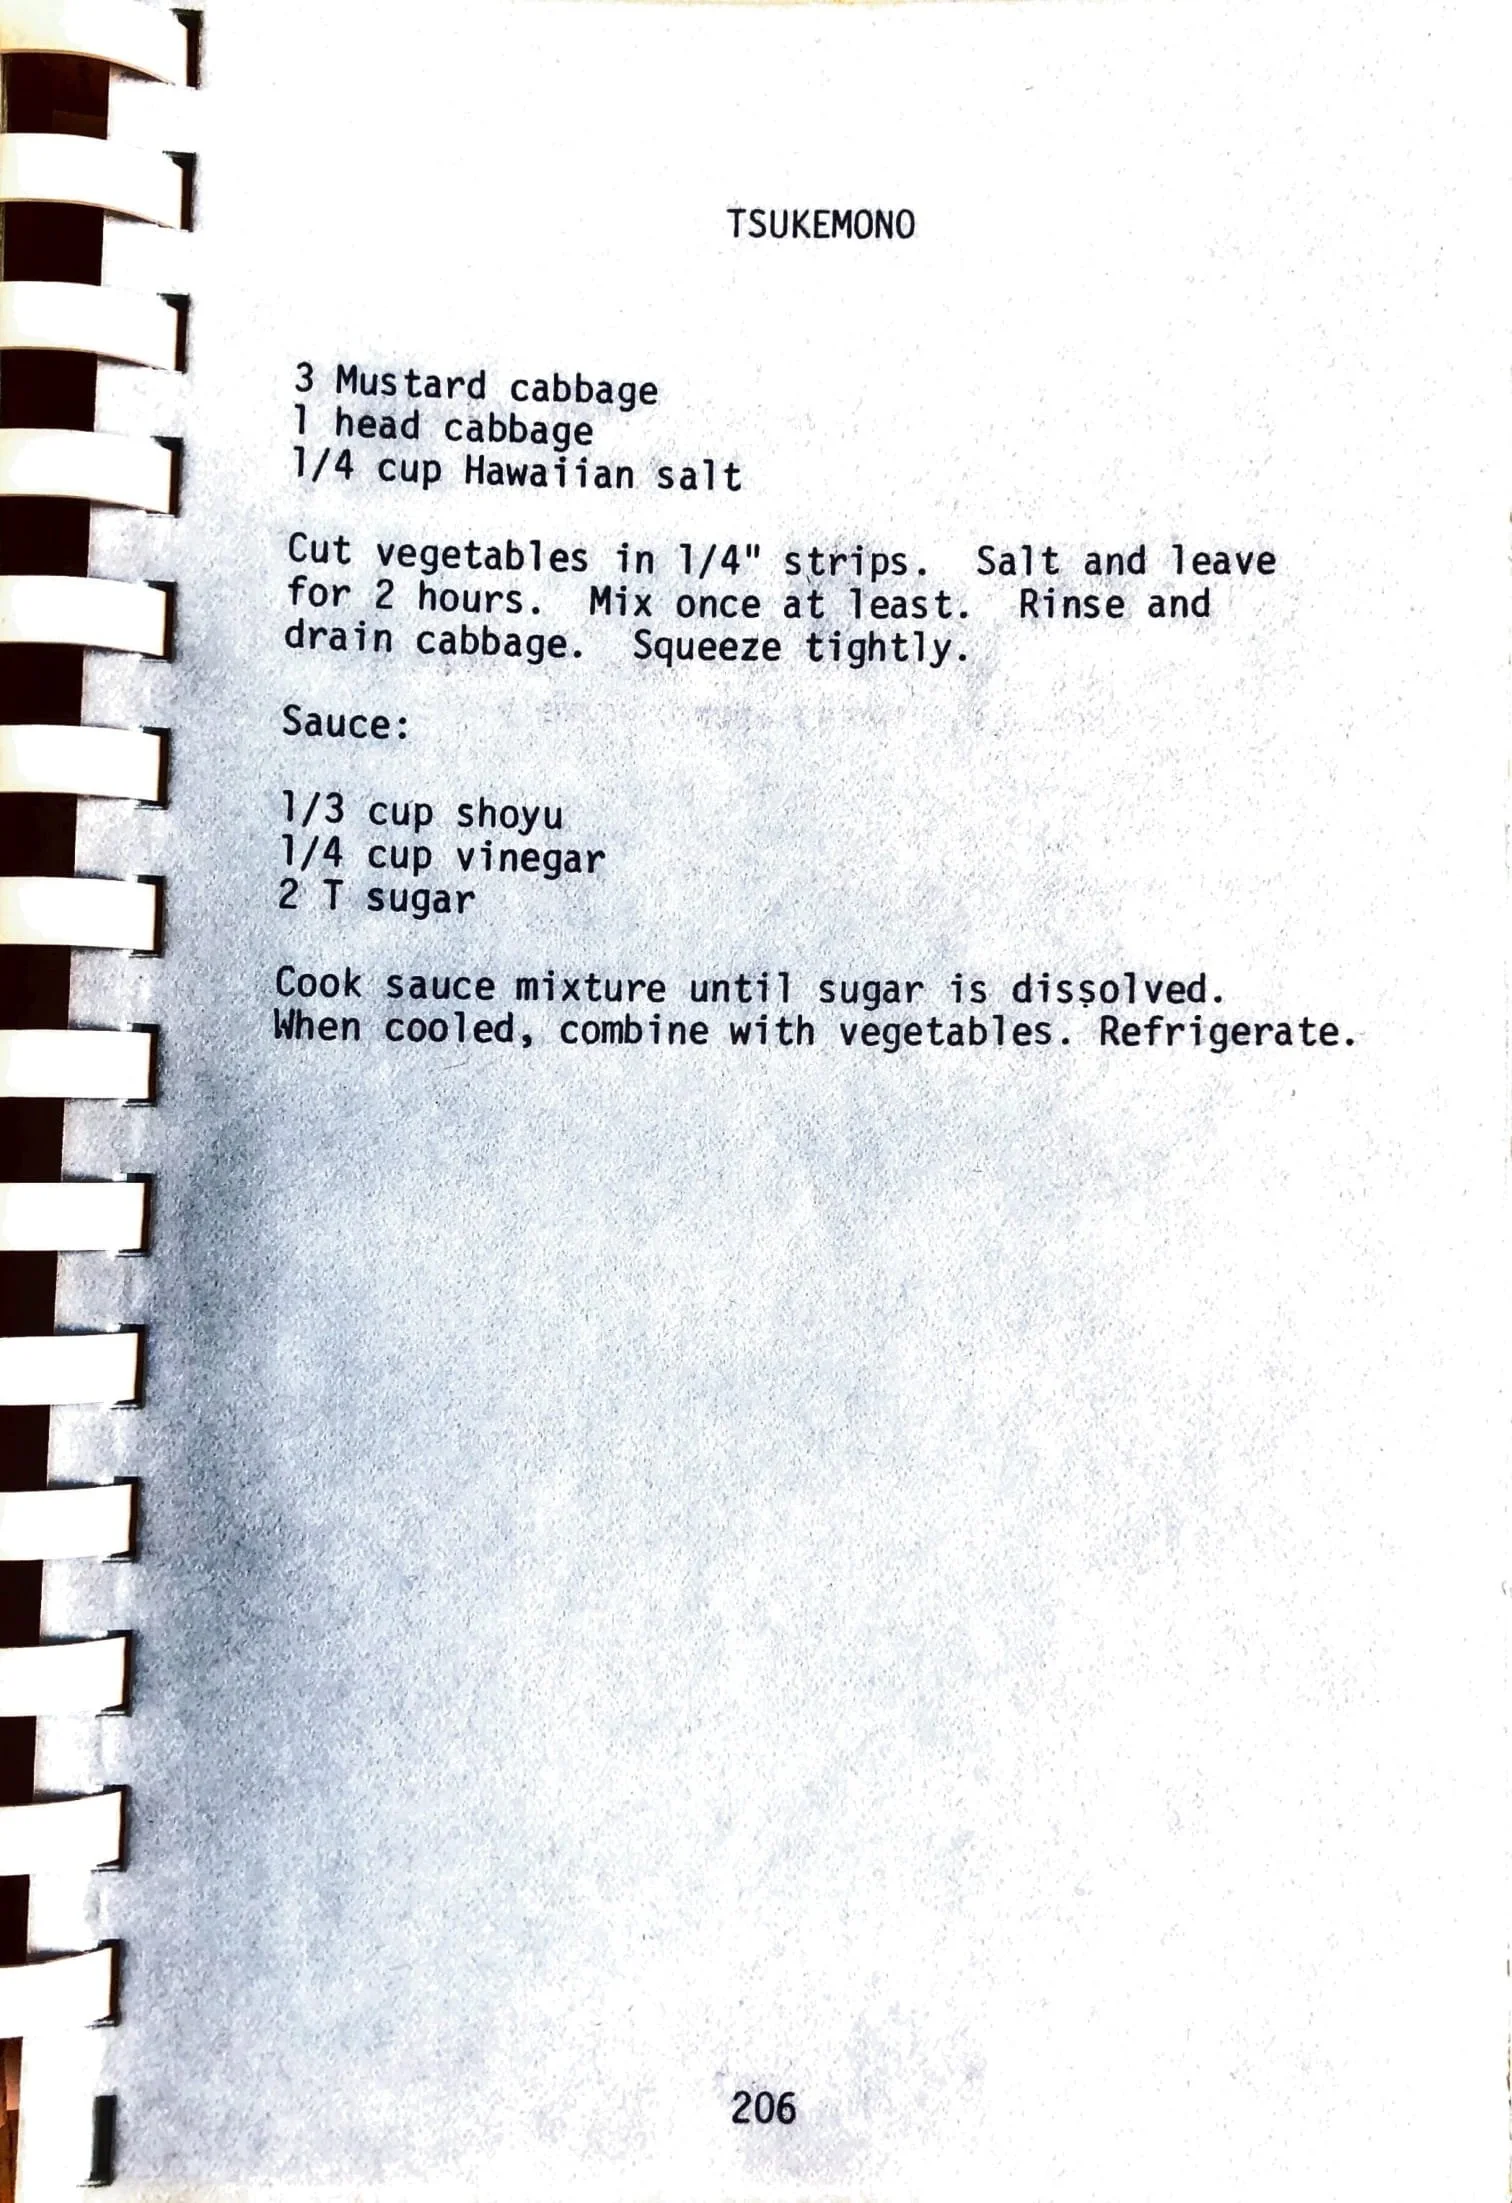 TSUKEMONO
3 Mustard cabbage
1 head cabbage
1/4 cup Hawaiian salt
Cut vegetables in 1/4" strips. Salt and leave
for 2 hours. Mix once at least. Rinse and
drain cabbage. Squeeze tightly.
Sauce:
1/3 cup shoyu
1/4 cup vinegar
2 T sugar
Cook sauce mixture until sugar is dissolved.
When cooled, combine with vegetables. Refrigerate.
206